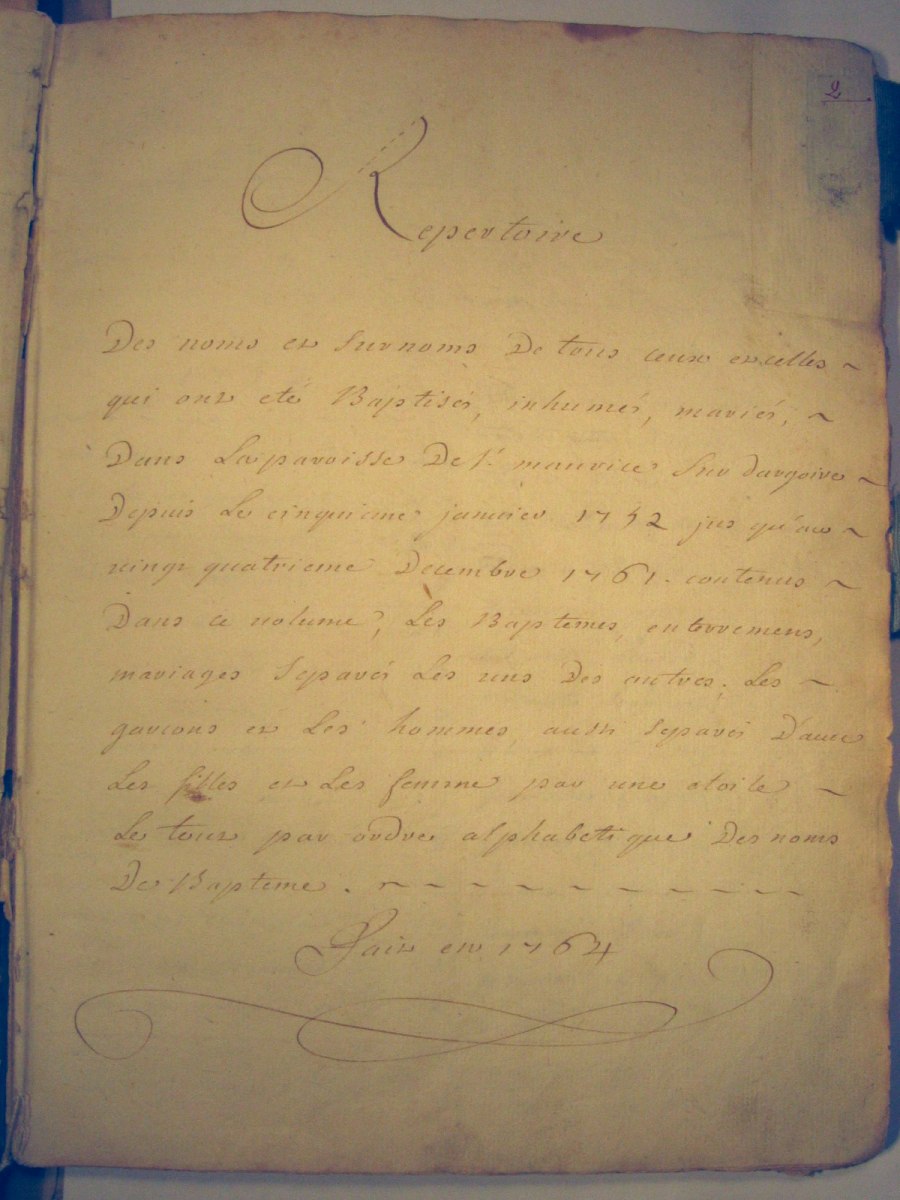 2
Repertoire
Des noms et Surnoms De tous ceux et celles ~
qui ont eté Baptisés, inhumés, mariés, ~
Dans La paroisse De St. maurice Sur dargoire ~
Depuis Le cinquieme janvier 1742 jus qu'au ~
vingt quatrieme Decembre 1761. contenus ~
Dans ce volume, Les Baptemes, enterremens,
mariages Separés Les uns Des autres. Les ~
garcons et Les hommes, aussi Separés D'avec
Les filles et Les femme par une etoile ~
Le tout par ordre alphabetique Des noms
De Bapteme. ~ ~ ~ ~ ~ ~ ~ ~ ~ ~
Fait en 1764